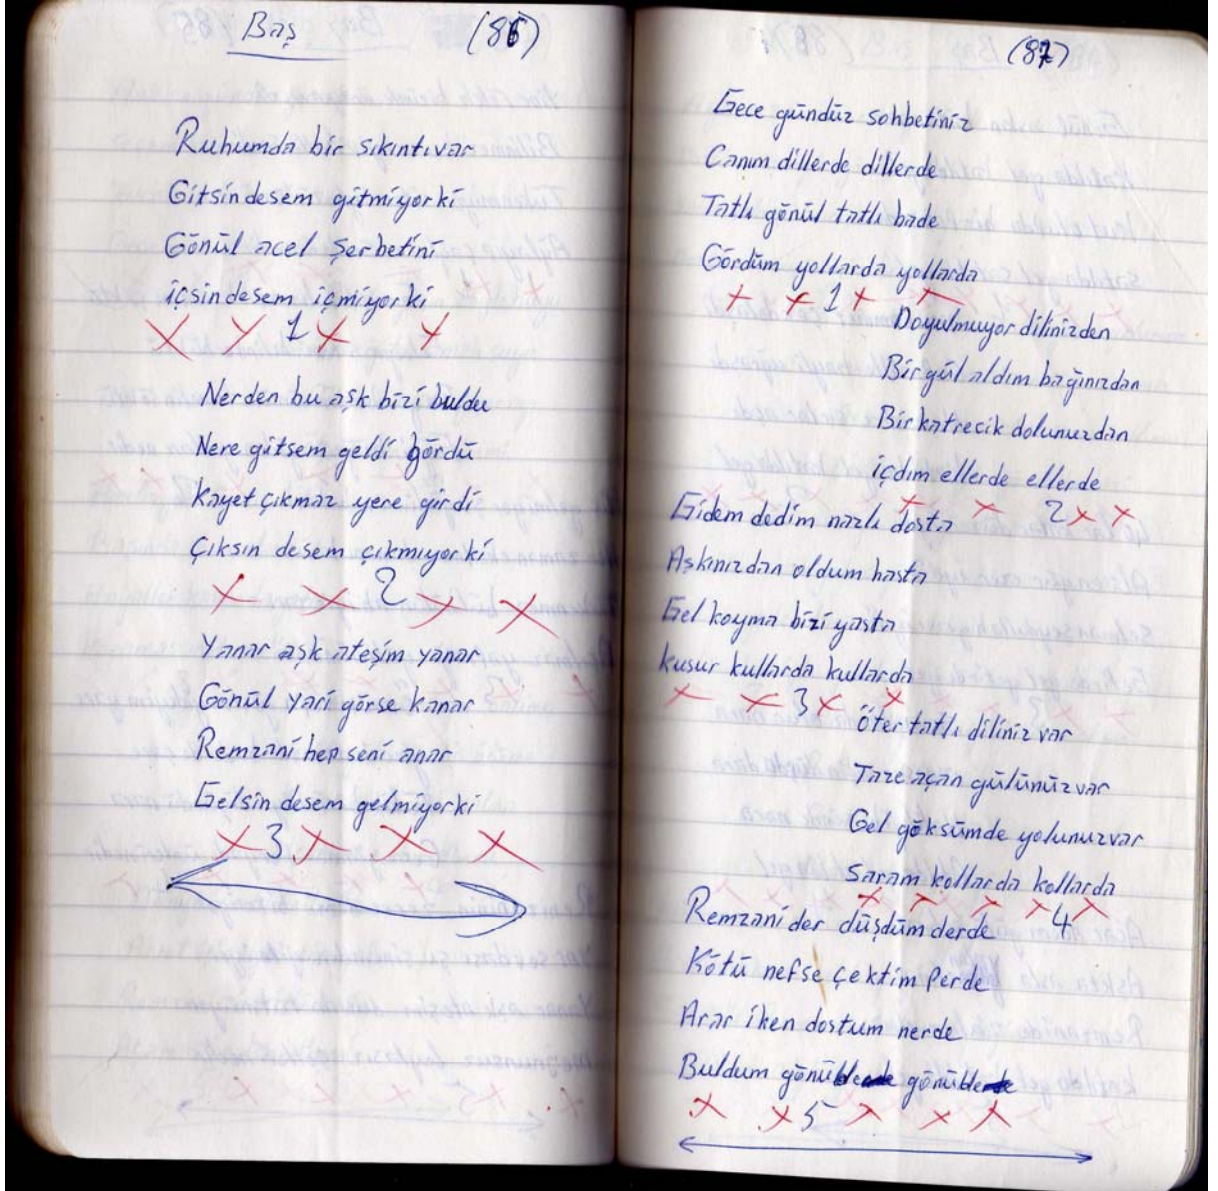 Baş (86)
Ruhumda bir sıkıntı var
Gitsin desem gitmiyorki
Gönül acel şerbetini
içsin desem içmiyorki
1
Nerden bu aşk bizi buldu
Nere gitsem geldi gördü
kayet çıkmaz yere girdi
Çıksın desem çıkmıyorki
2
Yanar aşk ateşim yanar
Gönül yari görse kanar
Remzani hep seni anar
Gelsin desem gelmiyorki
3
(87)
Gece gündüz sohbetiniz
Canım dillerde dillerde
Tatlı gönül tatlı bade
Gördüm yollarda yollarda
1
Doyulmuyor dilinizden
Bir gül aldım bağınızdan
Bir katrecik dolunuzdan
içdim ellerde ellerde
2
Gidem dedim nazlı dosta
Aşkınızdan oldum hasta
Gel koyma bizi yasta
kusur kullarda kullarda
3
Öter tatlı diliniz var
Taze açan gülünüz var
Gel göksümde yolunuz var
Saram kollarda kollarda
4
Remzani der düşdüm derde
Kötü nefse çektim perde
Arar iken dostum nerde
Buldum
5